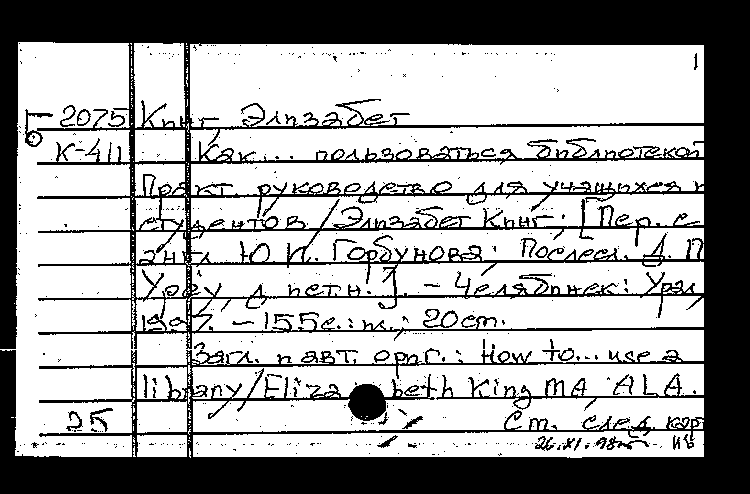 1
Г- 2075 Кинг, Элизабет
К-411 Как... пользоваться библиотекой
Практ. руководство для учащихся и
студентов / Элизабет Кинг; [Пер. с
англ. Ю. И. Горбунова; Послесл. Д. П
Урсу, д. пет. н.]. - Челябинск: Урал,
1997. - 155с.: ил.; 20 cm.
Загл. и авт. ориг.: How to... use a
library/Elizabeth King MA, ALA.
25 Cm. след. кар
26.XI.98